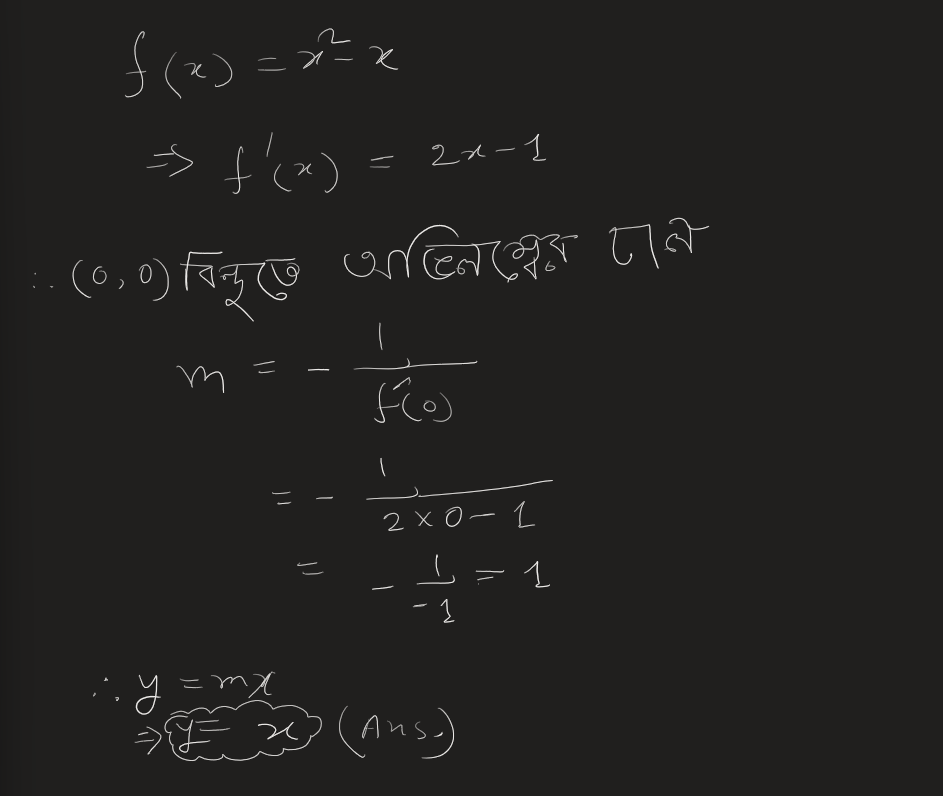 f(x) = x² - x
⇒ f'(x) = 2x - 1
∴ (0, 0) বিন্দুতে অভিলম্বের ঢাল
m = - 1/f'(0)
= - 1/(2 × 0 - 1)
= - 1/-1 = 1
∴ y = mx
⇒ y = x (Ans.)